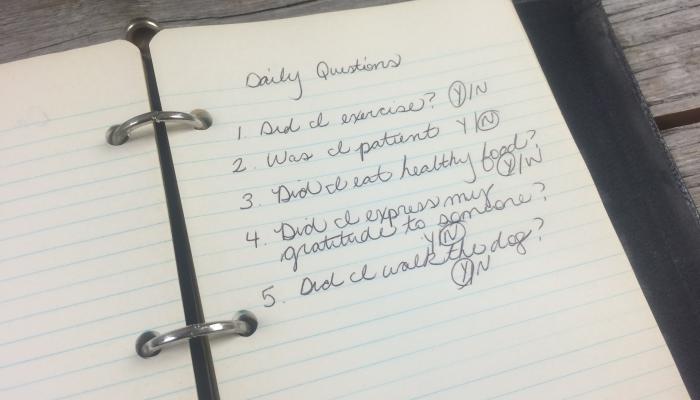 Daily Questions
1. Did I exercise? Y/N
2. Was I patient Y/N
3. Did I eat healthy food?
Y/N
4. Did I express my
gratitude to someone?
Y/N
5. Did I walk the dog?
Y/N